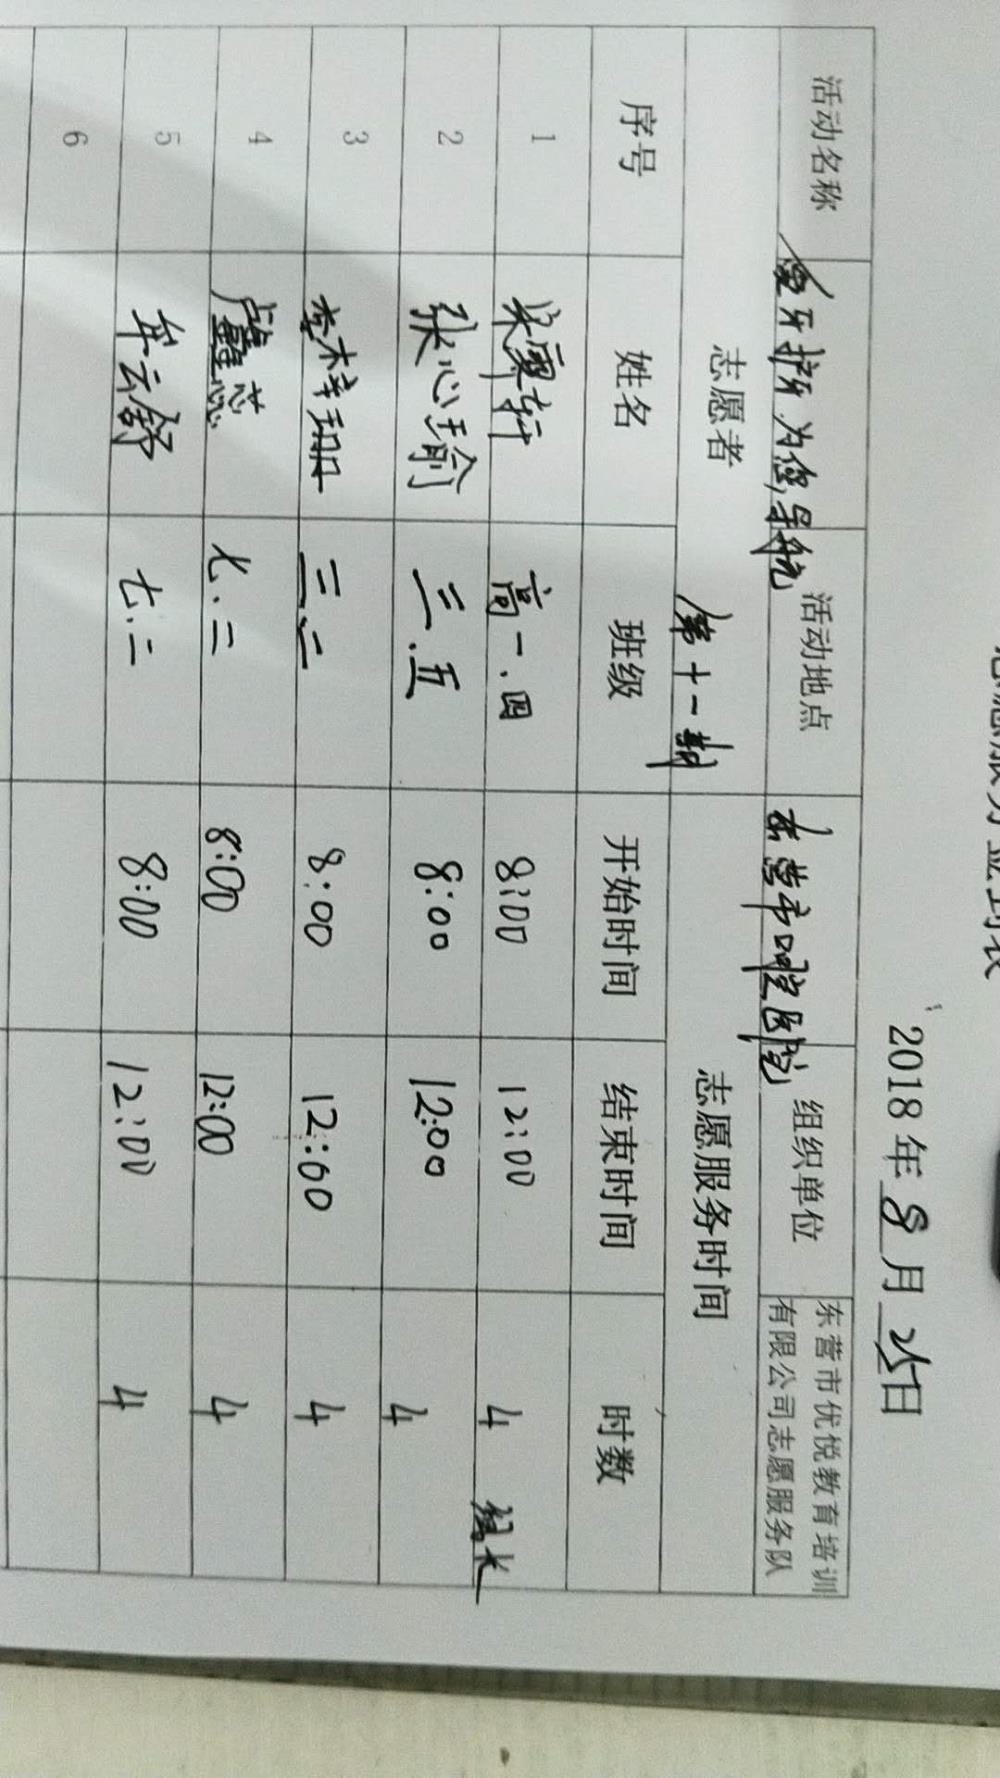 2018年8月25日
活动名称 爱牙护牙 为您导航 活动地点 东营市口腔医院 组织单位 东营市优悦教育培训
有限公司志愿服务队
志愿者 第十一期 志愿服务时间
序号 姓名 班级 开始时间 结束时间 时数
1 高一.四 8:00 12:00 4 组长
2 张心瑜 三.五 8:00 12:00 4
3 李梓珊 三.二 8:00 12:00 4
4 卢鑫蕊 七.二 8:00 12:00 4
5 牟云舒 七.二 8:00 12:00 4
6